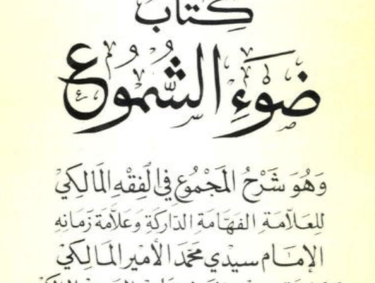 كِتَابُ
ضَوْءِ الشُّمُوعِ
وَهُوَ شَرْحُ المَجْمُوعِ فِي الْفِقْهِ المَالِكِيِّ
لِلعَلاَّمَةِ الفَهَّامَةِ الدَّارِكَةِ وَعَلَّامَةِ زَمَانِهِ
الإِمَامِ سِيدِي مُحَمَّد الأَمِيرِ المَالِكِيِّ